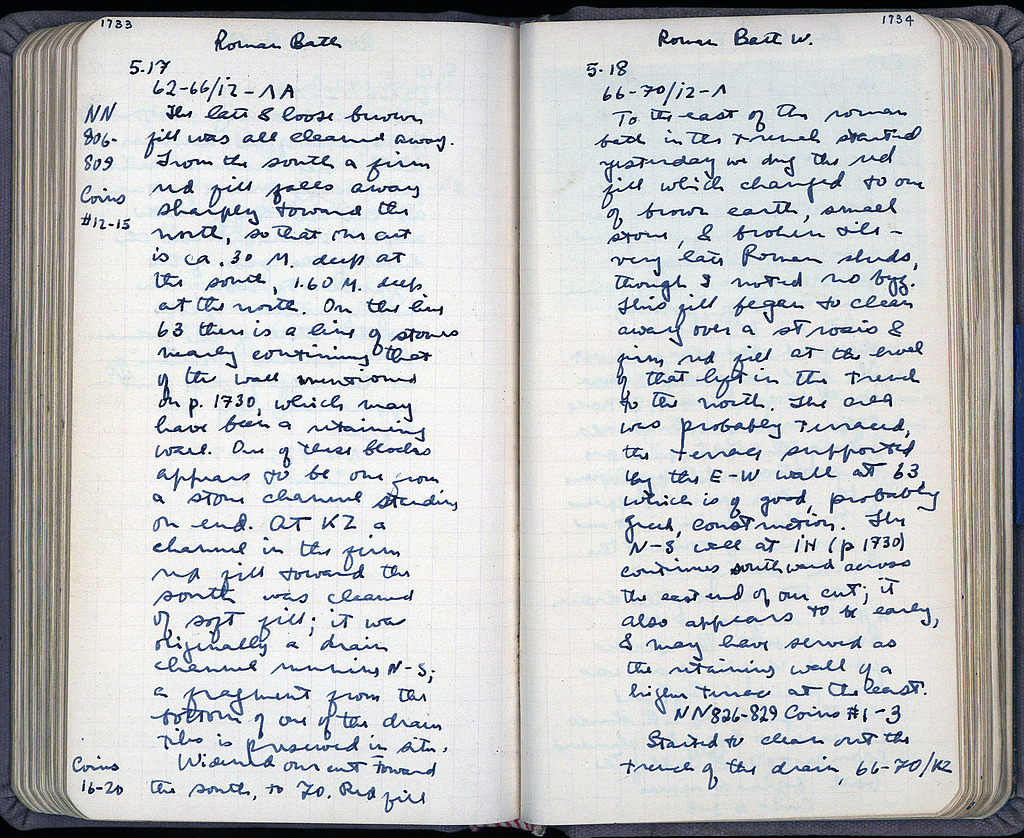 1733
Roman Bath
5.17
62-66/ΙΖ-ΛΑ
NN The late & loose brown
806- fill was all cleared away.
809 From the south a firm
Coins red fill falls away
#12-15 sharply toward the
north, so that our cut
is ca. .30 M. deep at
the south, 1.60 M. deep
at the north. On the line
63 there is a line of stones
nearly continuing that
of the wall mentioned
on p. 1730, which may
have been a retaining
wall. One of these blocks
appears to be one from
a stone channel standing
on end. At ΚΖ a
channel in the firm
red fill toward the
south was cleared
of soft fill; it was
originally a drain
channel running N-S;
a fragment from the
bottom of one of the drain
tiles is preserved in situ.
Widened our cut toward
Coins
16-20 the south, to 70. Red fill
1734
Roman Bath W.
5.18
66-70/ΙΖ-Λ
To the east of the roman
bath in the trench started
yesterday we dug the red
fill which changed to one
of brown earth, small
stone, & broken tile –
very late Roman sherds,
though I noted no byz.
This fill began to clean
away over a strosis &
firm red fill at the level
of that left in the trench
to the north. The area
was probably terraced,
the terrace supported
by the E-W wall at 63
which is of good, probably
Greek, construction. The
N-S wall at ΙΗ (p 1730)
continues southward across
the east end of our cut; it
also appears to be early,
& may have served as
the retaining wall of a
higher terrace at the east.
NN 826-829 Coins #1-3
Started to clean out the
trench of the drain, 66-70/ΚΖ